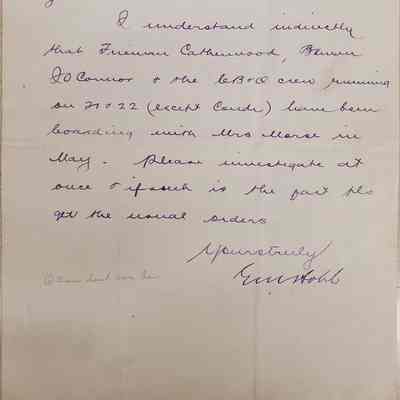 I understand indirectly
that Fireman Catherwood,
O'Connor & the CB&Q crew running
on 21 & 22 (except Condr) have been
boarding with Mrs Morse in
May. Please investigate at
once & if such is the fact pls
get the usual orders
Yours truly